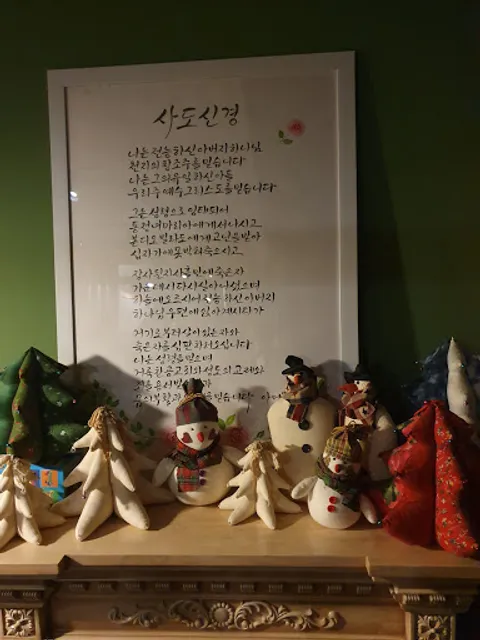 사도신경
나는 전능하신 아버지 하나님
천지의 창조주를 믿습니다
나는 그의 유일하신 아들
우리 주 예수 그리스도를 믿습니다
그는 성령으로 잉태되어
동정녀 마리아에게서 나시고
본디오 빌라도에게 고난을 받아
십자가에 못 박혀 죽으시고
장사된지 사흘만에 죽은자
가운데서 다시 살아나셨으며
하늘에 오르시어 전능하신 아버지
하나님 우편에 앉아 계시다가
거기로부터 살아있는 자와
죽은 자를 심판하러 오십니다
나는 성령을 믿으며
거룩한 공교회와 성도의 교제와
믿습니다